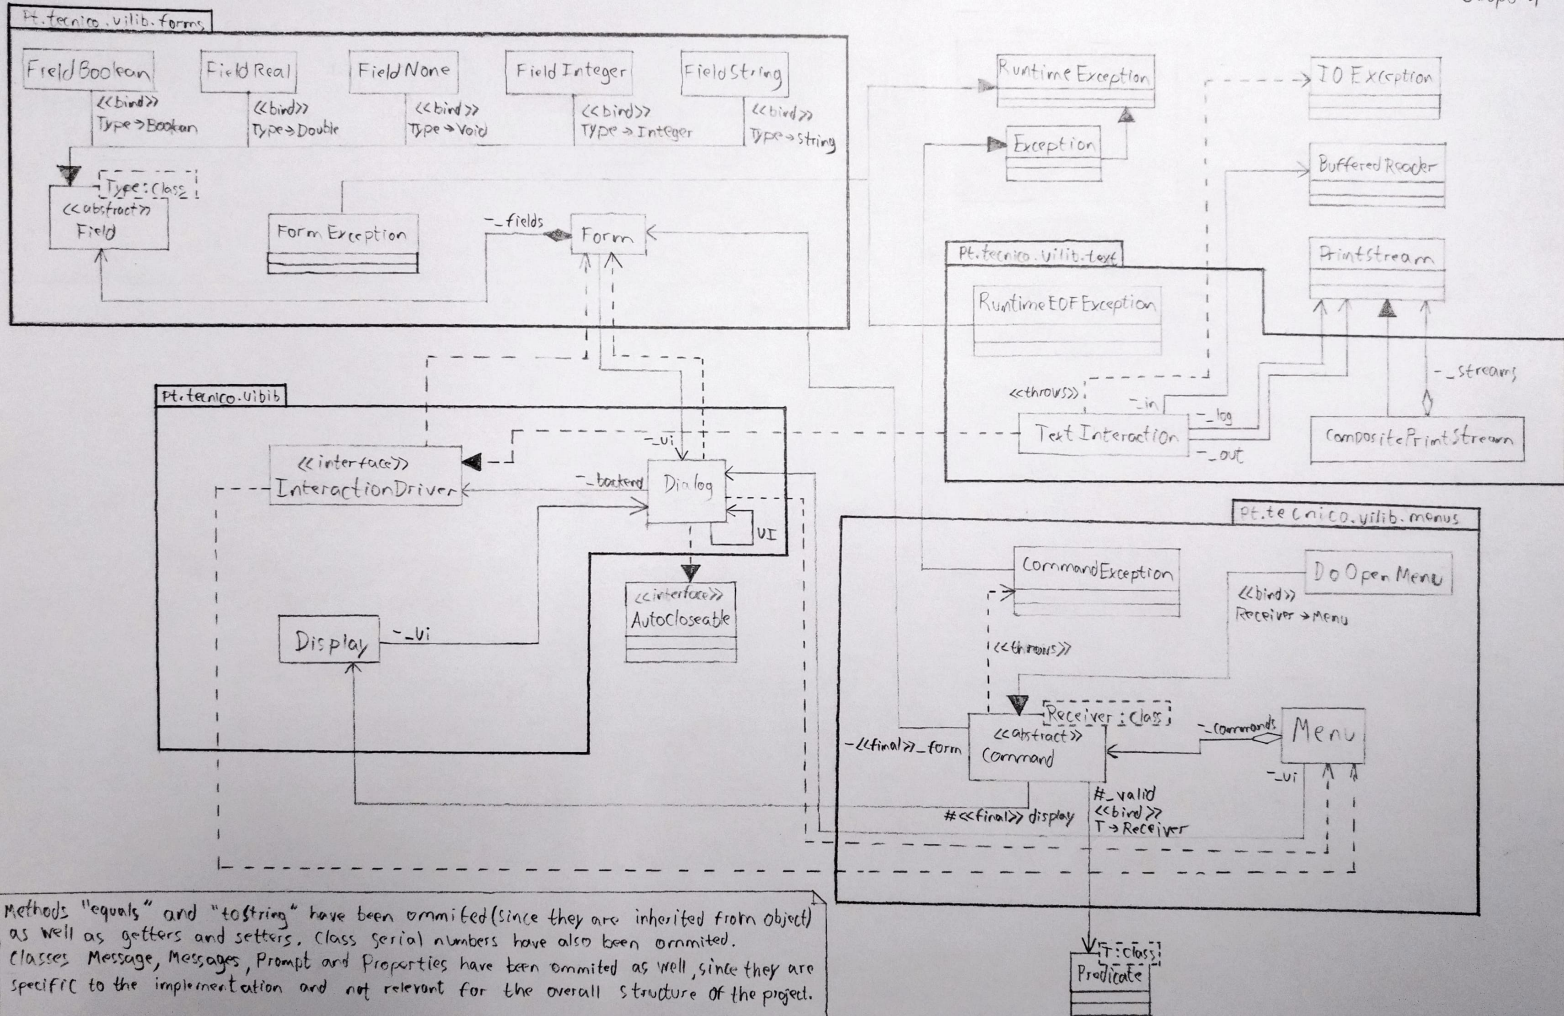 Pt.tecnico.uilib.forms
FieldBoolean
FieldReal
FieldNone
FieldInteger
FieldString
<<bind>>
Type→Boolean
<<bind>>
Type→Double
<<bind>>
Type→Void
<<bind>>
Type→Integer
<<bind>>
Type→String
Type:Class
<<abstract>>
Field
FormException
-_fields
Form
RuntimeException
Exception
IOException
BufferedReader
PrintStream
Pt.tecnico.uilib.text
RuntimeEOFException
<<throws>>
-_in
-_log
-_out
TextInteraction
-_streams
CompositePrintStream
Pt.tecnico.uibib
<<interface>>
InteractionDriver
-_ui
-_backend
Dialog
UI
<<interface>>
AutoCloseable
Display
-_ui
Pt.tecnico.uilib.menus
CommandException
DoOpenMenu
<<bind>>
Receiver→Menu
<<throws>>
Receiver:Class
<<abstract>>
Command
-<<final>>_form
-_commands
Menu
-_ui
#<<final>> display
#_valid
<<bind>>
T→Receiver
T:Class
Predicate
Methods "equals" and "toString" have been ommited(since they are inherited from object)
as well as getters and setters. Class serial numbers have also been ommited.
Classes Message, Messages, Prompt and Properties have been ommited as well, since they are
specific to the implementation and not relevant for the overall structure of the project.